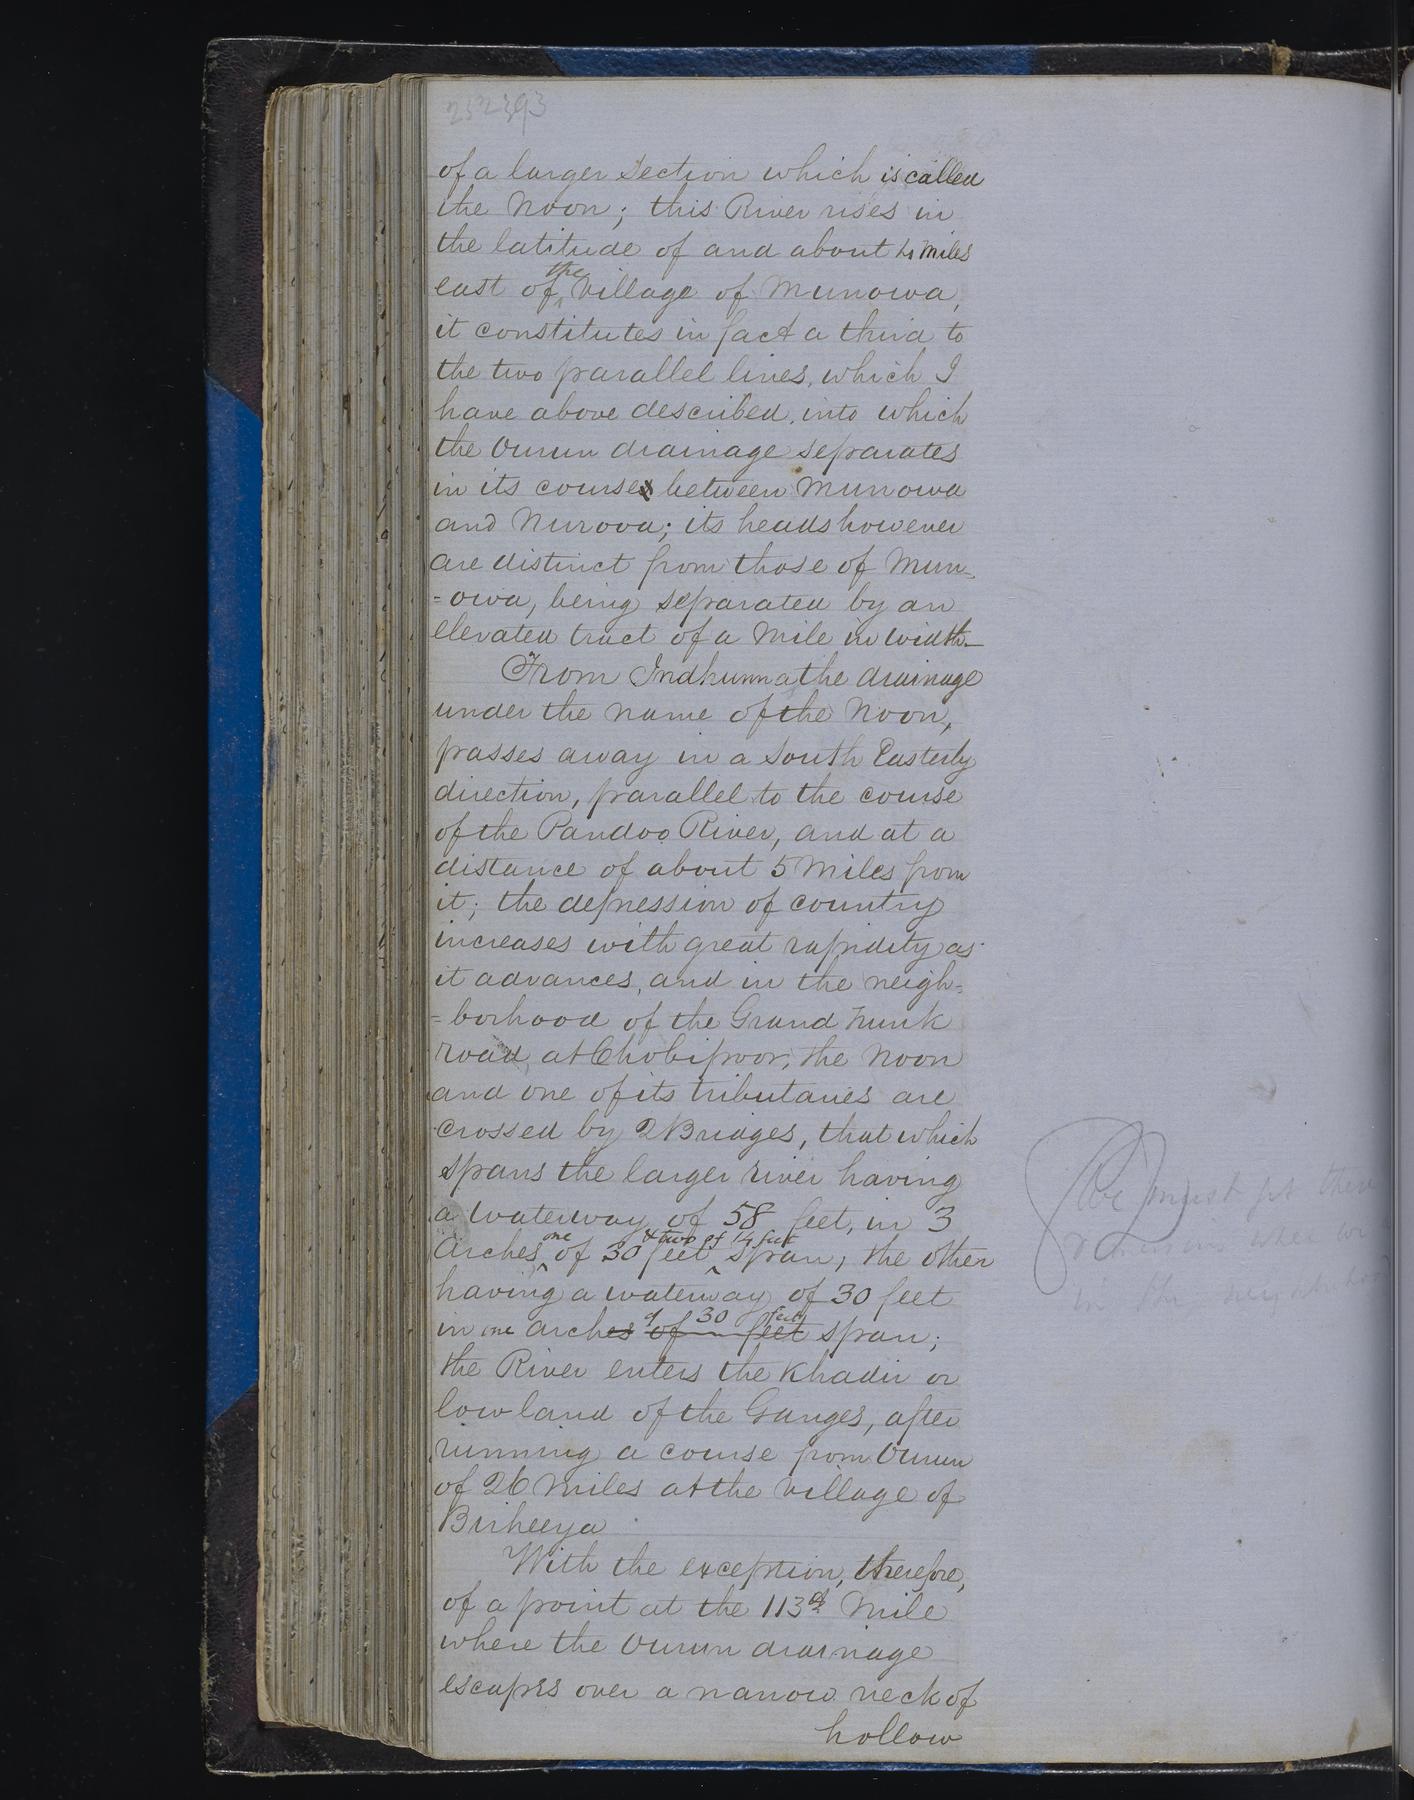 of a larger section which is called
the Noon; this River rises in
the latitude of and about 4 miles
east of the village of Munowa,
it constitutes in fact a third to
the two parallel lines, which I
have above described, into which
the Ourun drainage separates
in its course between Munowa
and Nurova; its heads however
are distinct from those of Mun-
=owa, being separated by an
elevated tract of a mile in width_
From Indhunna the drainage
under the name of the Noon,
passes away in a South Easterly
direction, parallel to the course
of the Pandoo River, and at a
distance of about 5 Miles from
it; the depression of country
increases with great rapidity as
it advances, and in the neigh-
=borhood of the Grand Trunk
road, at Chobipoor, the Noon
and one of its tributaries are
crossed by 2 Bridges, that which
spans the larger river having
a waterway of 58 feet, in 3
arches, one of 30 feet & two of 14 feet span, the other
having a waterway of 30 feet
in one arches of 30 feet span;
the River enters the Khadir or
low land of the Ganges, after
running a course from Ourun
of 26 Miles at the village of
Birheeya
With the exception, therefore,
of a point at the 113d Mile
where the Ourun drainage
escapes over a narrow neck of
hollow
We must get
in the